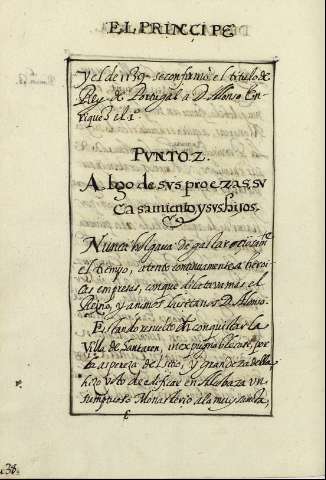 EL PRINCIPE
y el de 1139 se confirmò el titulo de
Rey de Portugal a D. Alonso En-
riques el 1º
PVNTO 2.
Algo de svs proezas, sv
Casamiento y svs hijos.
Nunca holgava de gastar
el tiempo, atento continuamente a heroi-
cas empresas, conque dilatava mas el
Reyno, y animos lusitanos D. Alonso.
Estando resuelto de conquistar la
Villa de Santaren, inexpugnable por
la aspereza del sitio, y grandeza della
hizo voto de edificar en Alcobaza un
sumptuoso Monasterio a la muy santa